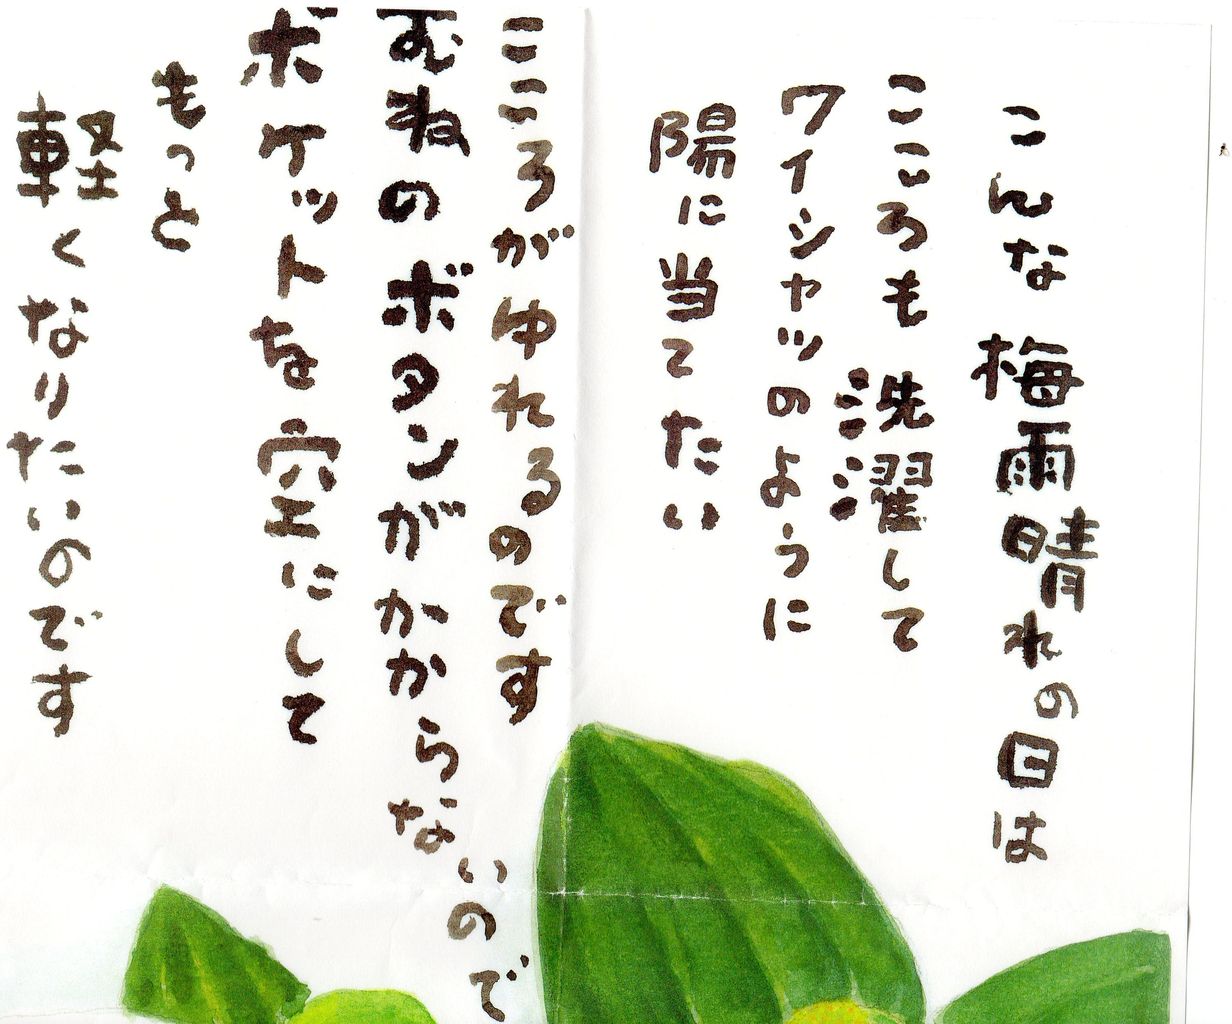 こんな梅雨晴れの日は
こころも洗濯して
ワイシャツのように
陽に当てたい
こころがゆれるのです
むねのボタンがかからないので
ポケットを空にして
もっと
軽くなりたいのです